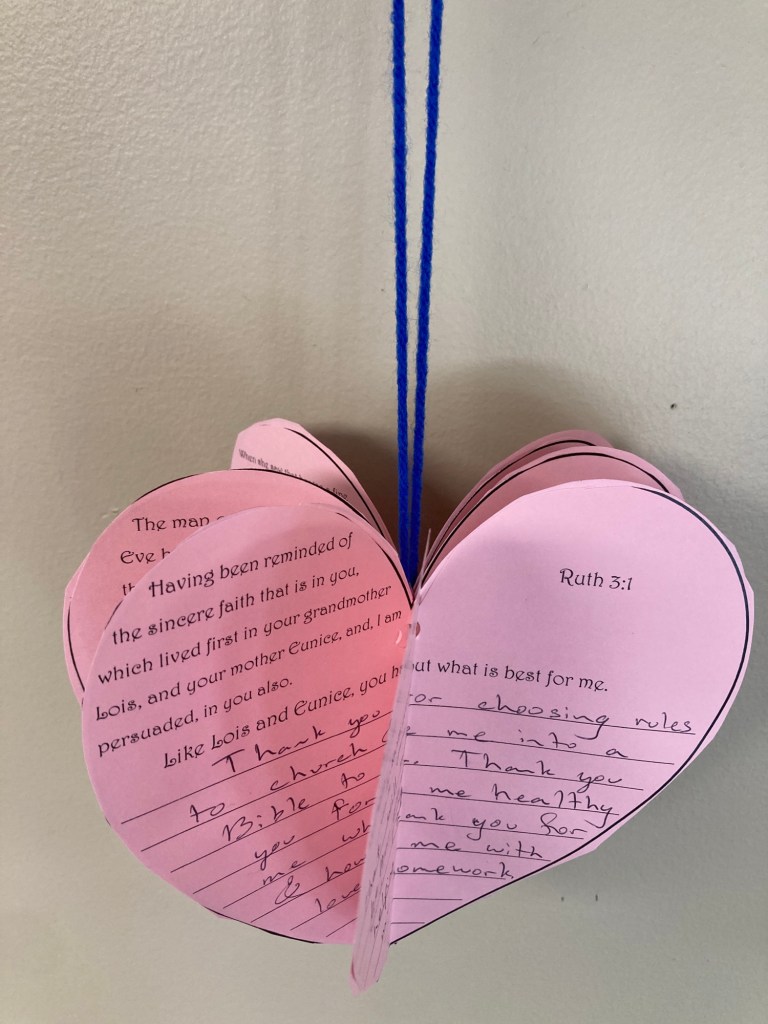 When she saw that
The man
Eve
Having been reminded of
the sincere faith that is in you,
which lived first in your grandmother
Lois, and your mother Eunice, and, I am
persuaded, in you also.
Like Lois and Eunice, you
Thank you
to church
Bible to
you for
me
&
love
Ruth 3:1
what is best for me.
choosing rules
me into a
Thank you
me healthy
you for
me with